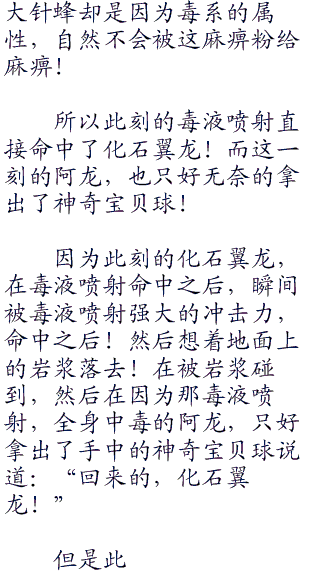 大针蜂却是因为毒系的属
性，自然不会被这麻痹粉给
麻痹！
所以此刻的毒液喷射直
接命中了化石翼龙！而这一
刻的阿龙，也只好无奈的拿
出了神奇宝贝球！
因为此刻的化石翼龙，
在毒液喷射命中之后，瞬间
被毒液喷射强大的冲击力，
命中之后！然后想着地面上
的岩浆落去！在被岩浆碰
到，然后在因为那毒液喷
射，全身中毒的阿龙，只好
拿出了手中的神奇宝贝球说
道：“回来的，化石翼
龙！”
但是此